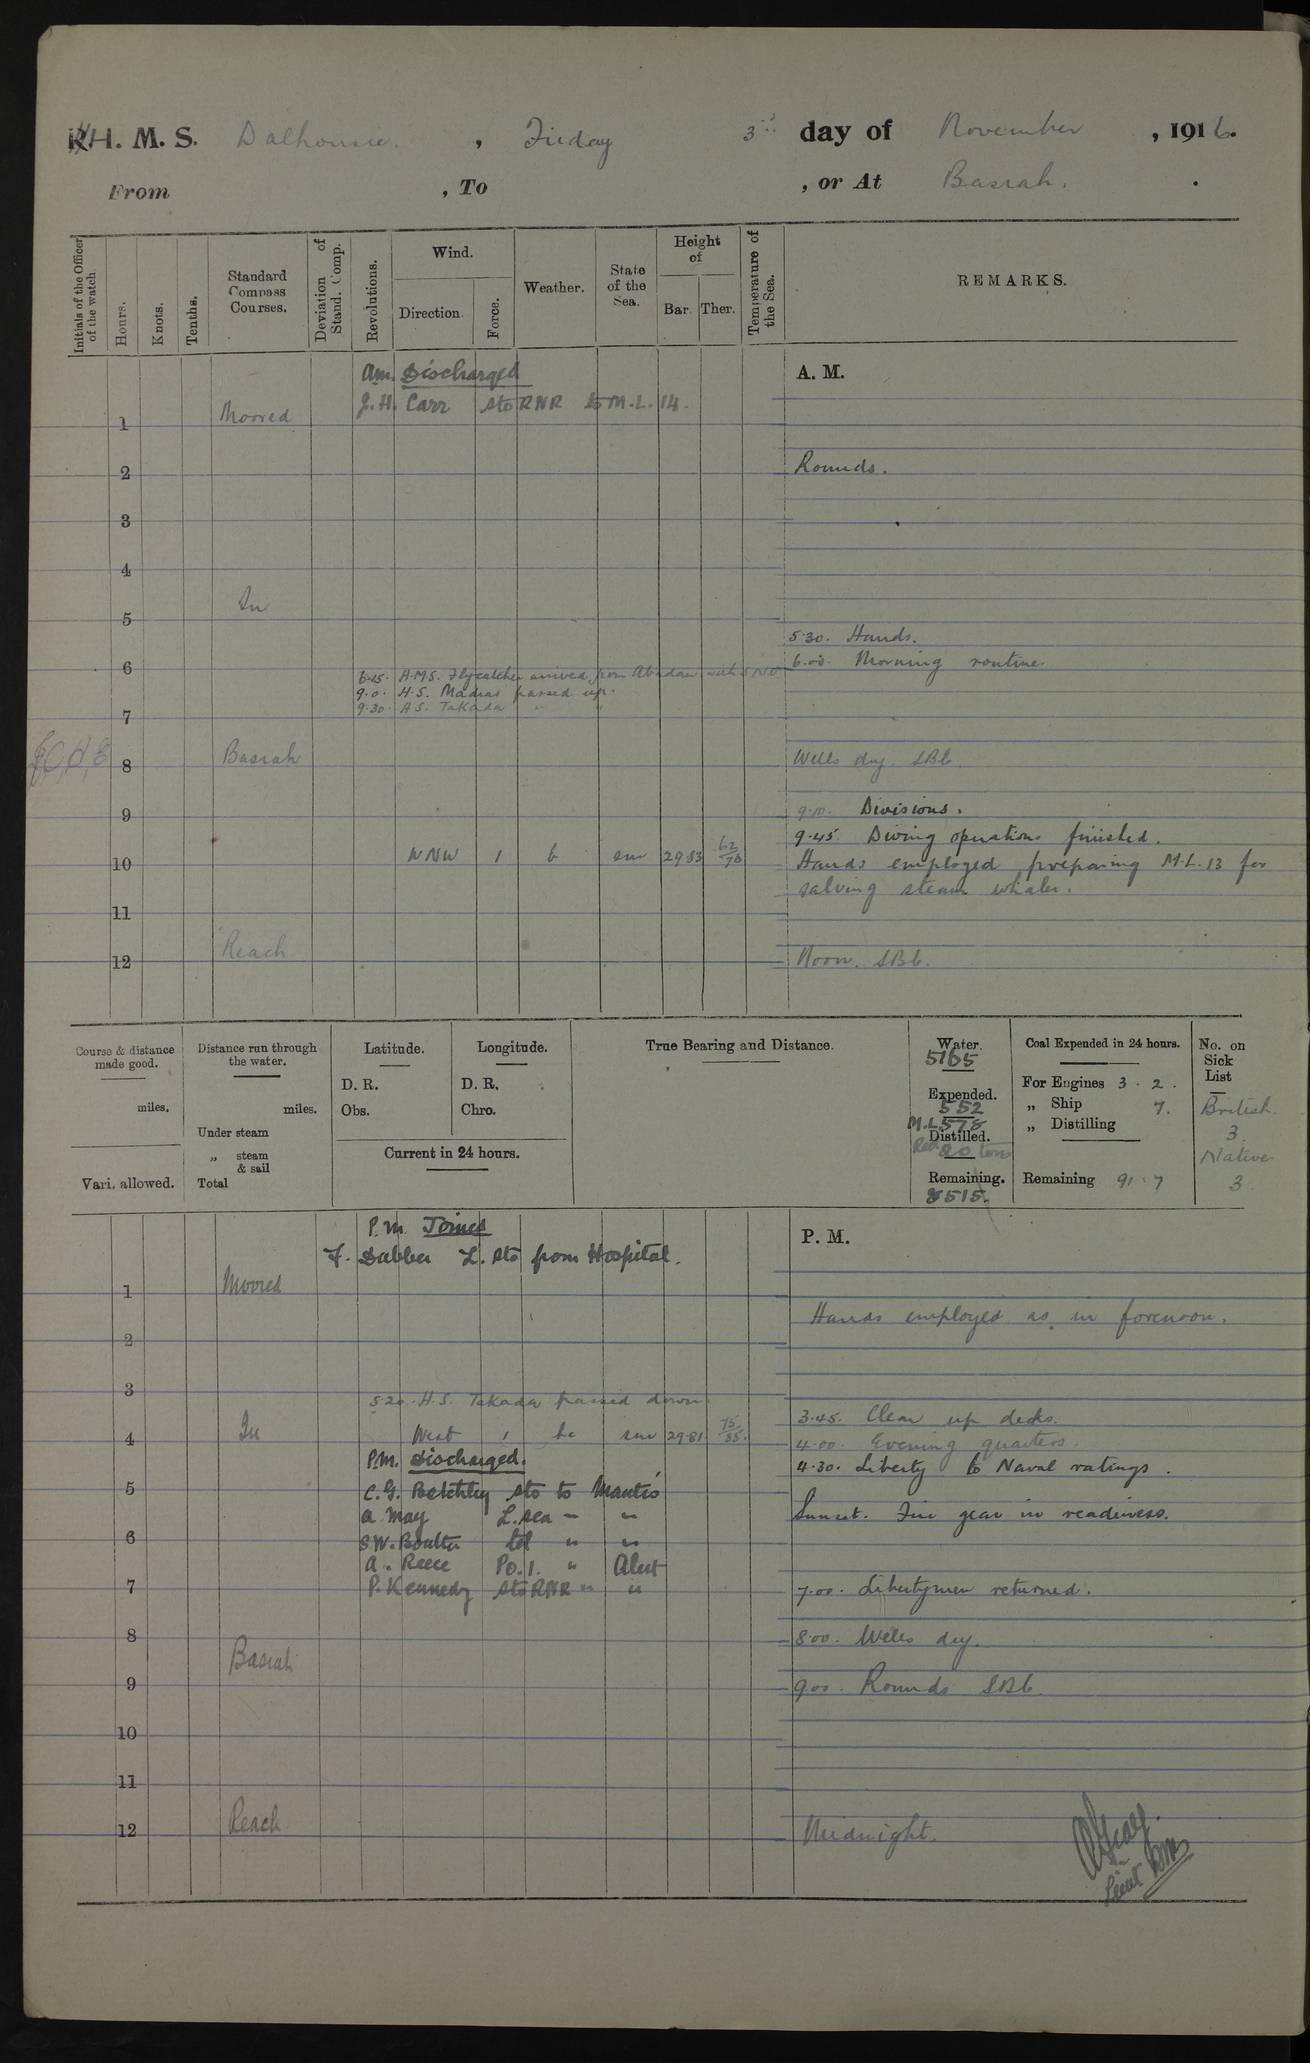 H. M. S. Dalhousie, Friday 3rd day of November, 1916.
From , To , or At Basrah.
Initials of the Officer of the watch
Hours.
Knots.
Tenths.
Standard Compass Courses.
Deviation of Stand. Comp.
Revolutions.
Wind.
Direction.
Force.
Weather.
State of the Sea.
Height of
Bar. Ther.
Temperature of the Sea.
REMARKS.
am. Discharged
A. M.
J. H. Carr sto RNR to M.L. 14.
1 Moored
2 Rounds.
3
4
In
5
5.30. Hands.
6 6.00 Morning routine.
6.15. H.M.S. Flycatcher arrived from Abadan with SNO
9.0. H.S. Madras passed up.
9.30 H.S. Takada " "
7
8 Basrah Wells dry. SB6
9 9.0. Divisions.
9.45 Diving operations finished.
10 WNW 1 b sm 29.83 62/70 Hands employed preparing M.L. 13 for
salving steam whaler.
11
Reach
12 Noon. SB6.
Course & distance made good.
miles.
Vari. allowed.
Distance run through the water.
miles.
Under steam
„ steam & sail
Total
Latitude.
D. R.
Obs.
Longitude.
D. R.
Chro.
Current in 24 hours.
True Bearing and Distance.
Water.
5165
Expended.
552
M.L. 578
Distilled.
Rec 20 tons
Remaining.
8515.
Coal Expended in 24 hours.
For Engines 3 . 2 .
„ Ship 7.
„ Distilling
Remaining 91 . 7
No. on Sick List
British.
3
Native
3
P.M. Joined
P. M.
F. Dabber L. sto from Hospital.
1 Moored
Hands employed as in forenoon.
2
3
5.20. H.S. Takada passed down
3.45. Clear up decks.
4 In West 1 bc sm 29.81 75/85. 4.00. Evening quarters.
P.M. Discharged.
4.30. Liberty to Naval ratings.
5 C.G. Betchley sto to Mantis
a. May L.sea " "
Sunset. Fire gear in readiness.
6 S.W. Boulter tel " "
A. Reece P.O.1. " Alert
7 P. Kennedy sto RNR " "
7.00. Libertymen returned.
8 8.00. Wells dry.
Basrah
9 9.00. Rounds SB6
10
11
12 Reach Midnight.
Lieut RIM